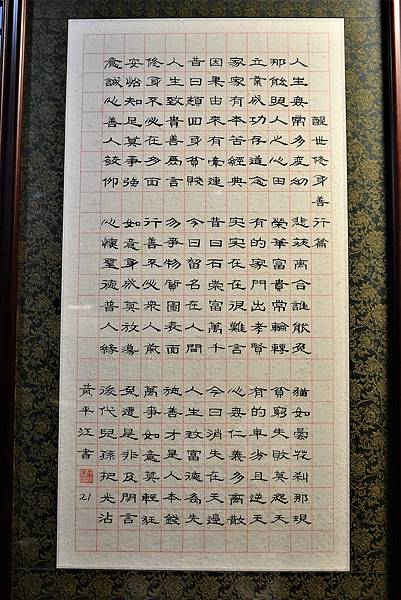 醒世修身善行篇
人生無常多變幻 悲歡離合誰能免 猶如曇花剎那現
那能 人心心田 榮華富貴常輪轉 貧窮失敗莫怨天
立業成功存道念 有的家門出孝賢 有的卑劣且逆天
家家有本苦經典 實實在在很難言 心無仁義多離散
因果由來有牽連 昔日石崇富萬千 今日消失在天邊
昔日顏回身貧賤 今日留名在人間 人生致富德為先
人生致貴善為言 勿爭物質圖表面 施善才是人本錢
修身不必在多面 行善不必眾人前 萬事如意莫輕狂
安怡知足莫爭強 如意身成莫放蕩 免遭是非及閒言
意誠心善人敬仰 心懷聖德普人緣 後代兒孫把光沾
黃平江書 21